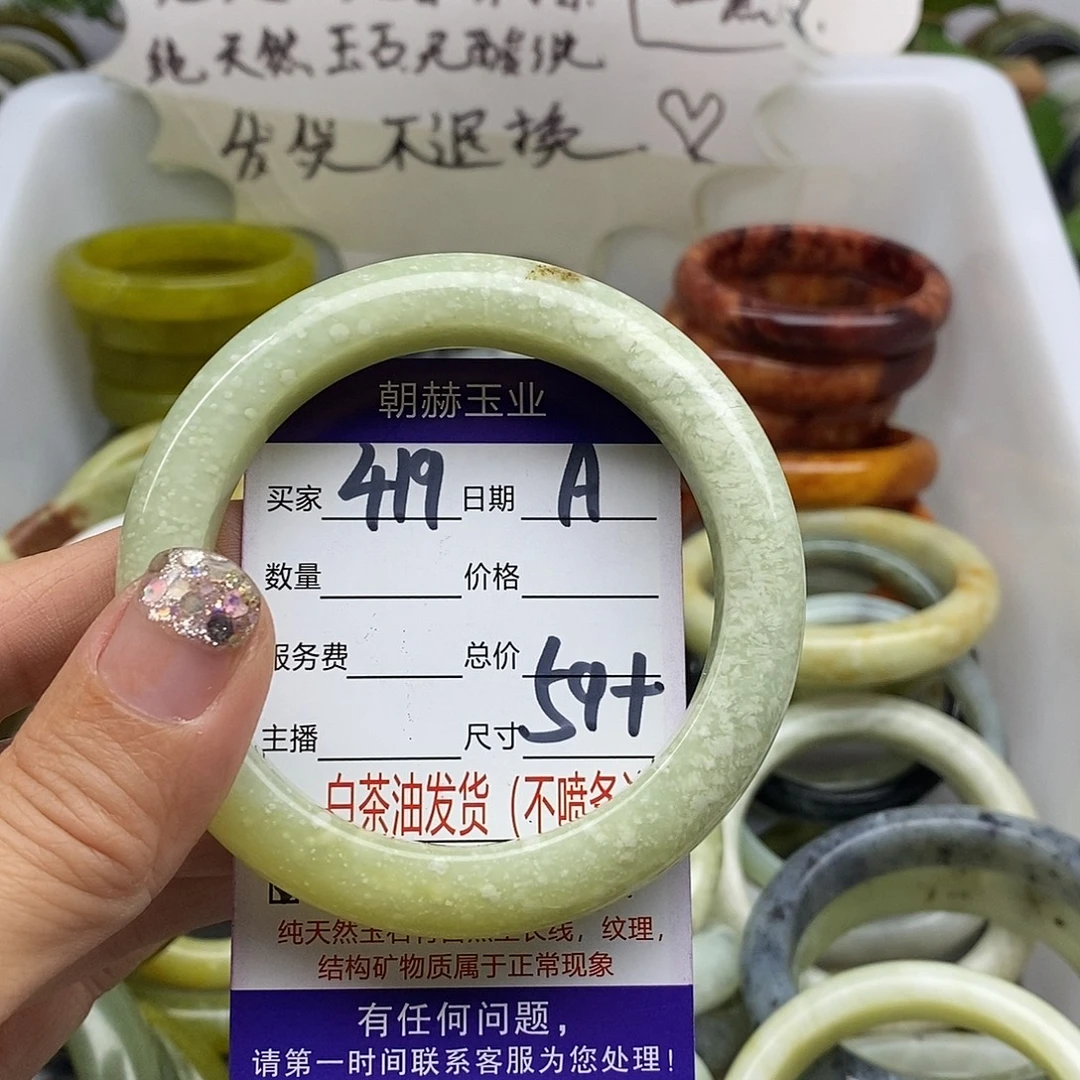 纯天然玉石无酸洗
发货不退换
朝赫玉业
买家 419 日期 A
数量 价格
服务费 总价
主播 尺寸 59+
白茶油发货(不喷
纯天然玉石有自然生长线，纹理，
结构矿物质属于正常现象
有任何问题，
请第一时间联系客服为您处理！